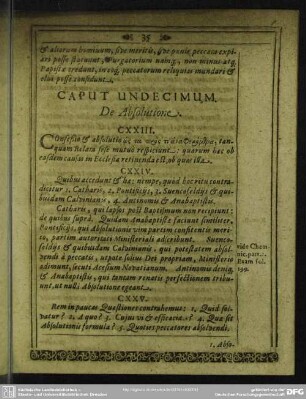 35
& aliorum hominum, sive meritis, sive pœnis peccata expi-
ari posse statuunt, Purgatorium
credunt, in eoq; peccatorum reliquias mundari &
elui posse
CAPUT UNDECIMUM.
De Absolutione.
CXXIII.
Confessio & absolutio
quam Relata sese mutuò respiciunt: quarum hæc ob
easdem causas in Ecclesia retinenda est, ob quas illa.
CXXIV.
Quibus accedunt & hæ: nempe, quòd hoc ritu contra-
dicitur 1. Catharis, 2. Pontificiis, 3. Suencfeldiis & qui-
busdam Calvinianis, 4. Antinomis & Anabaptistis.
Cathari, qui lapsos post Baptismum non recipiunt:
de quibus suprà. Quidam Anabaptistæ faciunt similiter.
Pontificii, qui Absolutionis vim partim confitentis meri-
to, partim autoritati Ministerialis adscribunt. Suenc-
feldius & quidam Calviniani, qui potestatem absol-
vendi à peccatis, utpote solius Dei propriam, Ministerio
adimunt, secuti Novatianum. Antinomi deniq;
& Anabaptistæ, qui tantam renatis perfectionem tribu-
unt, ut nullâ Absolutione egeant.
CXXV.
Rem in paucas Quæstiones contrahemus: 1. Quid sol-
vatur? 2. A quo? 3. Cujus vi & efficaciâ? 4. Quæ sit
Absolutionis formula? 5. Quoties peccatores absolvendi.
1. Abso-
vide Chem-
nic. part.
Exam. fol.
199.